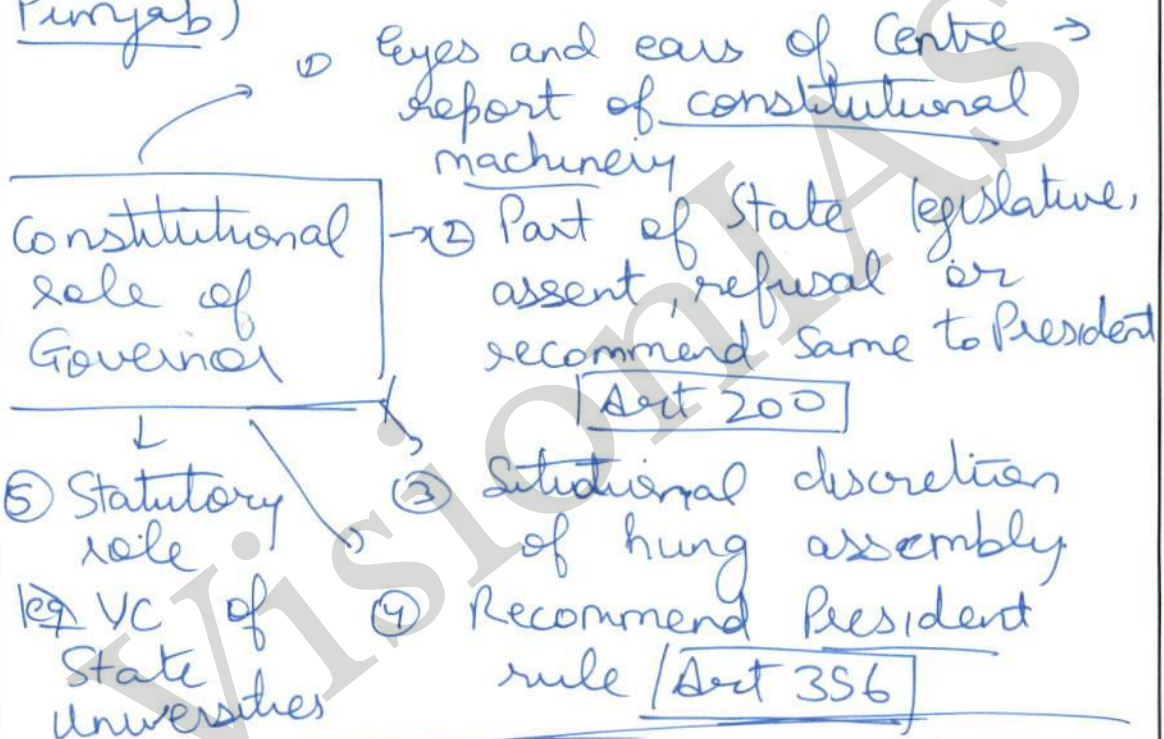 Punjab)
① Eyes and ears of Centre →
report of constitutional
machinery
Constitutional
role of
Governor
→② Part of State legislative,
assent, refusal or
recommend same to President
Art 200
③ Situational discretion
of hung assembly
④ Recommend President
rule / Art 356
⑤ Statutory
role
eg VC of
State
Universities
VisionIAS